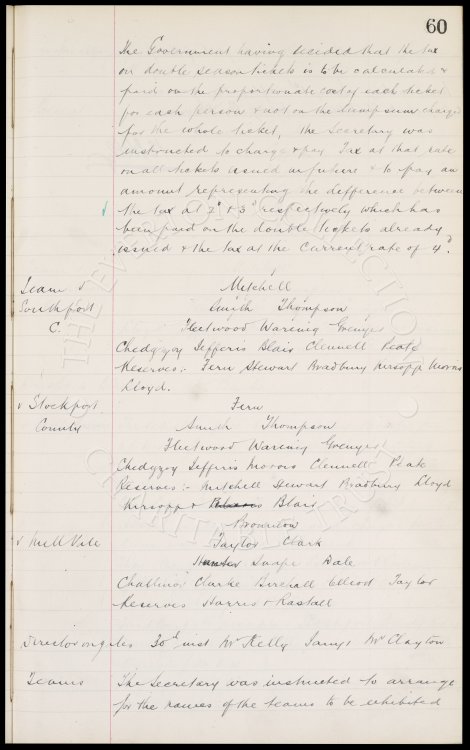 60
The Government having decided that the tax
on double season tickets is to be calculated &
paid on the proportionate cost of each ticket
for each person & not on the lump sum charged
for the whole ticket, the Secretary was
instructed to charge & pay Tax at that rate
on all tickets issued in future & to pay an
amount representing the difference between
the tax at 2d & 3d respectively which has
been paid on the double tickets already
issued & the tax at the current rate of 4d.
Team v Mitchell
Southport Smith Thompson
C. Fleetwood Wareing Grenyer
Chedgzoy Jefferis Blair Clennell Peate
Reserves:- Fern Stewart Bradbury Kirsopp Morris
Lloyd.
v Stockport Fern
County Smith Thompson
Fleetwood Wareing Grenyer
Chedgzoy Jefferis Morris Clennell Peate
Reserves:- Mitchell Stewart Bradbury Lloyd
Kirsopp & Blair
Brownlow
v Mill Vale Taylor Clark
Snape Dale
Challinor Clarke Birchall Elliott Taylor
Reserves Harris & Rastall
30th inst Mr Kelly Mr Clayton
Teams The Secretary was instructed to arrange
for the names of the teams to be exhibited
THE EVERTON COLLECTION
CHARITABLE TRUST